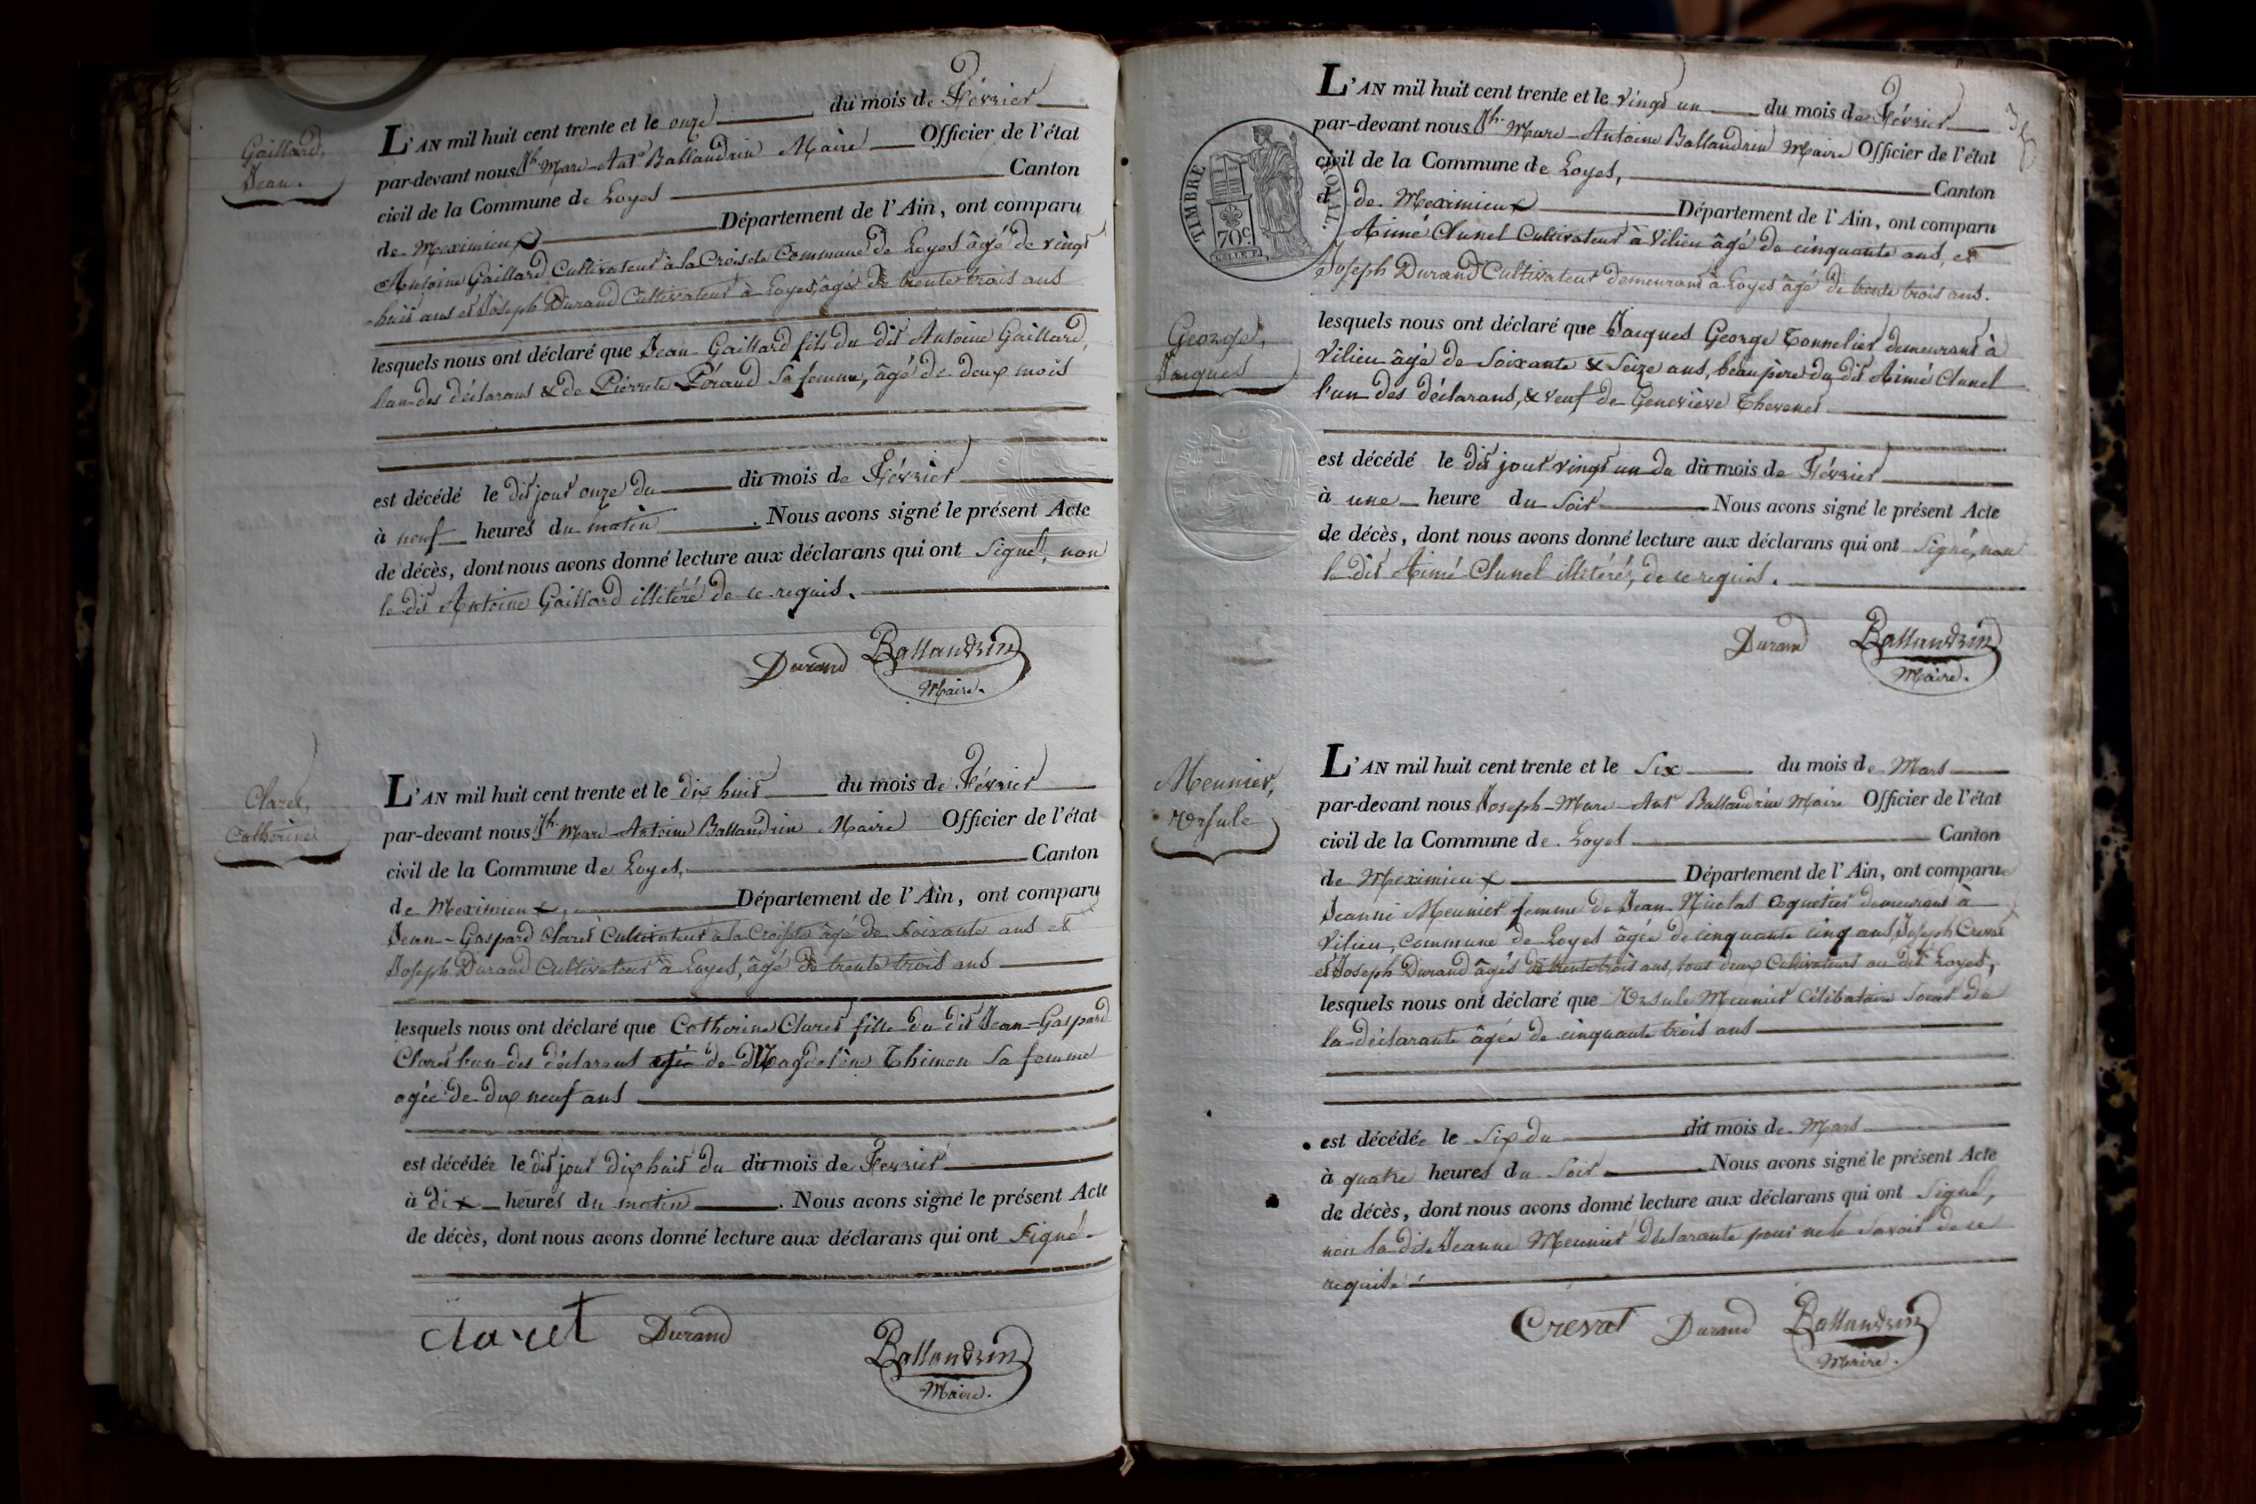 Gaillard,
Jean.
L'AN mil huit cent trente et le onze du mois de Février
par-devant nous Jh. Marc-Ant.e Ballandrin Maire Officier de l'état
civil de la Commune de Loyes Canton
de Meximieux Département de l'Ain, ont comparu
Antoine Gaillard Cultivateur à la Croisete Commune de Loyes âgé de vingt
huit ans et Joseph Durand Cultivateur à Loyes, âgé de trente trois ans
lesquels nous ont déclaré que Jean Gaillard fils du dit Antoine Gaillard,
l'un des déclarans & de Pierrete Péraud sa femme, âgé de deux mois
est décédé le dit jour onze du dit mois de Février
à neuf heures du matin. Nous avons signé le présent Acte
de décès, dont nous avons donné lecture aux déclarans qui ont signés, non
le dit Antoine Gaillard illitéré de ce requis.
Durand Ballandrin
Maire.
Claret,
Catherine
L'AN mil huit cent trente et le dix huit du mois de Février
par-devant nous Jh. Marc-Antoine Ballandrin Maire Officier de l'état
civil de la Commune de Loyes, Canton
de Meximieux, Département de l'Ain, ont comparu
Jean-Gaspard Claret Cultivateur à la Croisete âgé de soixante ans et
Joseph Durand Cultivateur à Loyes, âgé de trente trois ans
lesquels nous ont déclaré que Catherine Claret fille du dit Jean-Gaspard
Claret l'un des déclarans de Magdelène Thimon sa femme
agée de dix neuf ans
est décédée le dit jour dix huit du dit mois de Fevrier
à dix heures du matin. Nous avons signé le présent Acte
de décès, dont nous avons donné lecture aux déclarans qui ont signé
claret Durand
Ballandrin
Maire.
TIMBRE ROYAL.
70c.
L'AN mil huit cent trente et le vingt un du mois de Février
par-devant nous Jh. Marc-Antoine Ballandrin Maire Officier de l'état
civil de la Commune de Loyes, Canton
de Meximieux Département de l'Ain, ont comparu
Aimé Clunel Cultivateur à Vilieu âgé de cinquante ans, et
Joseph Durand Cultivateur demeurant à Loyes âgé de trente trois ans.
George,
Jacques
lesquels nous ont déclaré que Jacques George Tonnelier demeurant à
Vilieu âgé de soixante & seize ans, beau père du dit Aimé Clunel
l'un des déclarans, & veuf de Geneviève Thevenet
est décédé le dit jour vingt un du dit mois de Février
à une heure du soir Nous avons signé le présent Acte
de décès, dont nous avons donné lecture aux déclarans qui ont signé, non
le dit Aimé Clunel illitéré, de ce requis.
Durand Ballandrin
Maire.
Meunier,
Ursule
L'AN mil huit cent trente et le six du mois de Mars
par-devant nous Joseph-Marc-Ant.e Ballandrin Maire Officier de l'état
civil de la Commune de Loyes Canton
de Meximieux Département de l'Ain, ont comparu
Jeanne Meunier femme de Jean Nicolas Coquetier demeurant à
Vilieu, commune de Loyes âgée de cinquante cinq ans, Joseph Creval
et Joseph Durand âgés de trente trois ans, tous deux Cultivateurs au dit Loyes,
lesquels nous ont déclaré que Ursule Meunier célibataire soeur de
la déclarante âgée de cinquante trois ans
est décédée le six du dit mois de Mars
à quatre heures du soir Nous avons signé le présent Acte
de décès, dont nous avons donné lecture aux déclarans qui ont signés,
non la dite Jeanne Meunier déclarante pour ne le savoir de ce
requise.
Creval Durand Ballandrin
Maire.